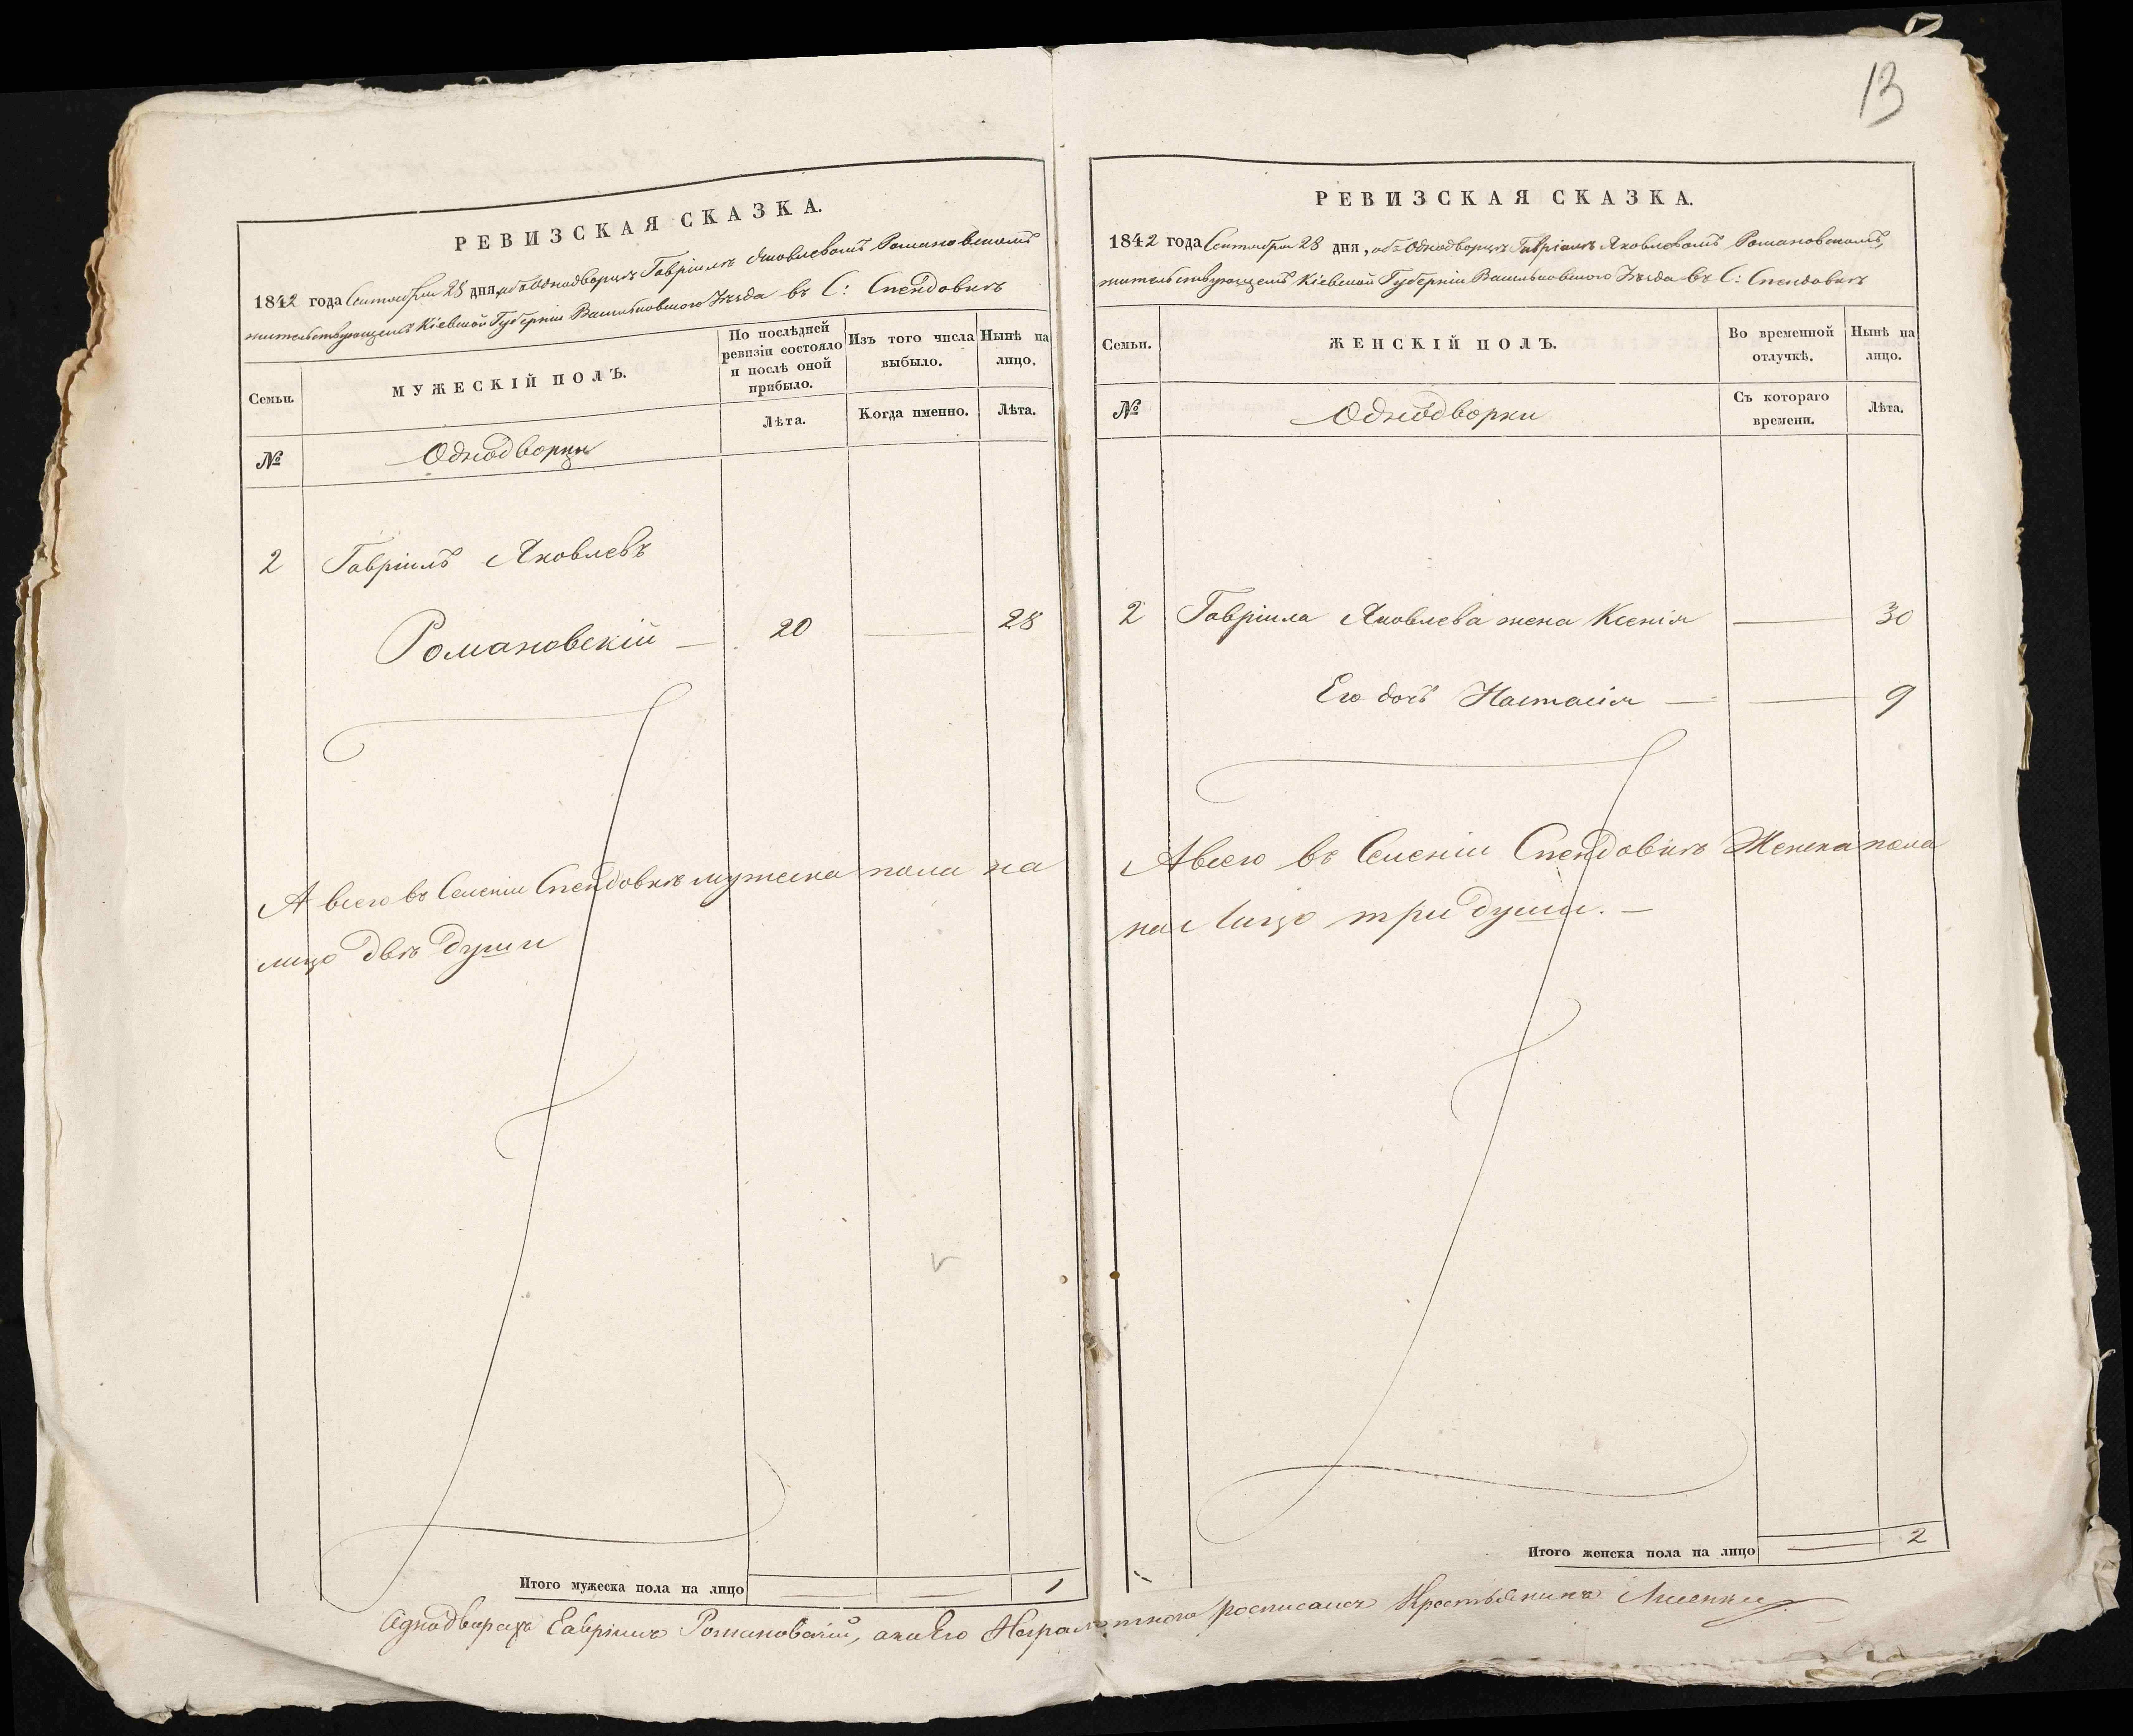 13
РЕВИЗСКАЯ СКАЗКА.
1842 года Сентября 28 дня, объ Однодворцѣ Гавріилѣ Яковлевомъ Романовскомъ
жительствующемъ Кіевской Губерніи Васильковскаго Уѣзда въ С: Спендовкѣ
Семьи.
МУЖЕСКІЙ ПОЛЪ.
По послѣдней ревизіи состояло и послѣ оной прибыло.
Изъ того числа выбыло.
Нынѣ на лицо.
№
Однодворцы
Лѣта.
Когда именно.
Лѣта.
2 Гавріилъ Яковлевъ
Романовскій — 20 — 28
А всего въ Селеніи Спендовкѣ мужеска пола на
лицо двѣ души
Итого мужеска пола на лицо — — 1
РЕВИЗСКАЯ СКАЗКА.
1842 года Сентября 28 дня, объ Однодворцѣ Гавріилѣ Яковлевомъ Романовскомъ,
жительствующемъ Кіевской Губерніи Васильковскаго Уѣзда въ С: Спендовкѣ
Семьи.
ЖЕНСКІЙ ПОЛЪ.
Во временной отлучкѣ.
Нынѣ на лицо.
№
Однодворки
Съ котораго времени.
Лѣта.
2 Гавріила Яковлева жена Ксенія — 30
Его дочь Настасія — — 9
А всего въ Селеніи Спендовкѣ Женска пола
на Лицо три души. —
Итого женска пола на лицо — 2
Аднодварацъ Гавріилъ Романовскій, а наЕго Награмотного росписался Крестьянинъ